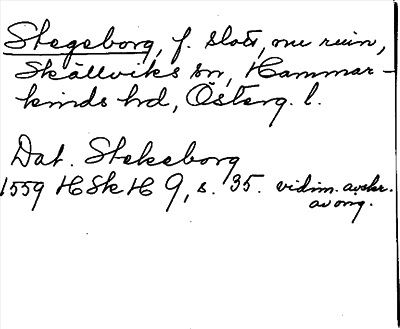 Stegeborg, f. slott, nu ruin,
Skällviks sn, Hammar-
kinds hd, Österg. l.
Dat. Stekeborg
1559 HSkH 9, s. 35. vidim. avskr.
av orig.